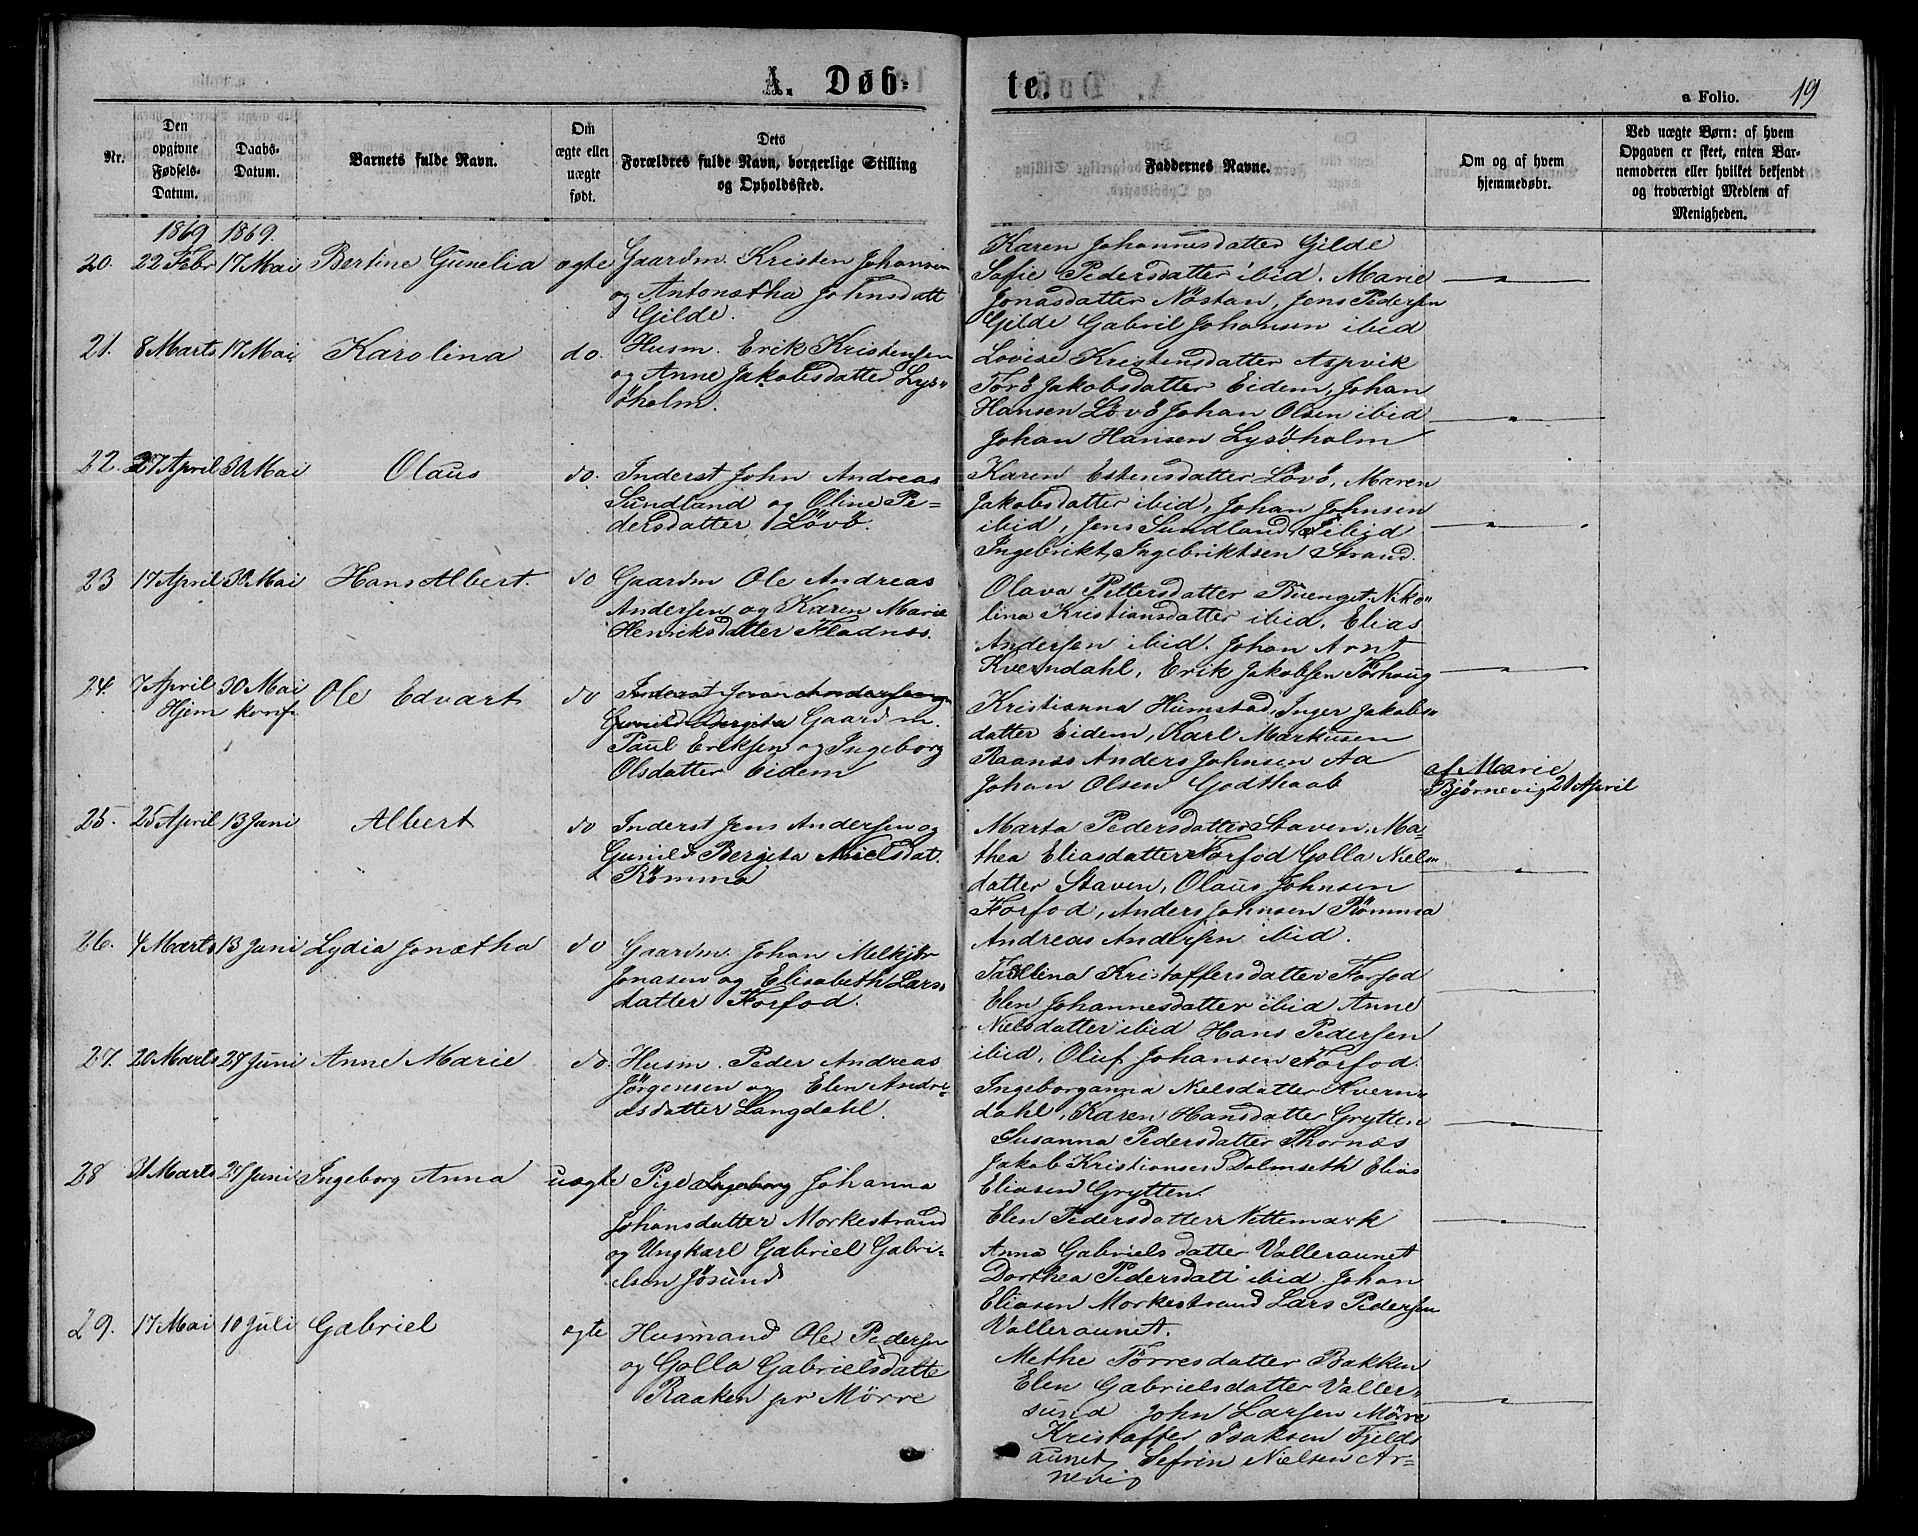 A. Døb-
te.
a Folio. 19
Nr.
Den opgivne Fødsels-Datum.
Daabs-Datum.
Barnets fulde Navn.
Om ægte eller uægte født.
Dets Forældres fulde Navn, borgerlige Stilling og Opholdssted.
Faddernes Navne.
Om og af hvem hjemmedøbt.
Ved uægte Børn: af hvem Opgaven er skeet, enten Barnemoderen eller hvilket bekjendt og troværdigt Medlem af Menigheden.
1869 1869.
20. 22 Febr 17 Mai Bertine Gunelia ægte Gaardm. Kristen Johansen
og Antonætha Johnsdatt
Gilde.
Karen Johannesdatter Gilde
Sofie Pedersdatter ibid. Marie
Jonasdatter Nøstan, Jens Pedersen
Gilde Gabriel Johansen ibid
21. 8 Marts 17 Mai Karolina do. Husm. Erik Kristensen
og Anne Jakobsdatter Lys"
øholm.
Lovise Kristensdatter Aspvik
Jakobsdatter Eidem, Johan
Hansen Lövö Johan Olsen ibid
Johan Hansen Lysøholm
22. 27 April 30 Mai Olaus do. Inderst John Andreas
Sundland og Oline Pe-
dersdatter Lövö.
Karen Estensdatter Lövö, Maren
Jakobsdatter ibid, Johan Johnsen
ibid, Jens Sundland ibid
Ingebrikt Ingebriktsen Strand.
23 17 April 30 Mai Hans Albert. do Gaardm Ole Andreas
Andersen og Karen Marie
Henriksdatter Fladnes.
Olava Pettersdatter Buenget. Niko"
lina Kristiansdatter ibid. Elias
Andersen ibid. Johan Arnt
Kverndahl, Erik Jakobsen Forhaug
24. 7 April 30 Mai Ole Edvart do Inderst Jens Andersen og
Hjem konf.
Gunild Bergita Gaardm.
Paul Eriksen og Ingeborg
Olsdatter Eidem
Kristianna Humstad, Inger Jakobs"
datter Eidem, Karl Markusen
Raanes Anders Johnsen Aa
Johan Olsen Godthaab
af Marie
Bjørnevig 21 April
25. 25 April 13 Juni Albert do Inderst Jens Andersen og
Gunild Bergita Nielsdat.
Römma
Marta Pedersdatter Staven. Ma-
thea Eliasdatter Forfod Golla Niels"
datter Staven, Olaus Johnsen
Forfod, Anders Johnsen Römma
Andreas Andersen ibid.
26. 4 Marts 13 Juni Lydia Jonætha do Gaardm. Johan Melkjør
Jonasen og Elisabeth Lars"
datter Forfod.
Kristoffersdatter Forfod
Elen Johannesdatter ibid Anne
Nielsdatter ibid Hans Pedersen
ibid. Oluf Johansen Forfod.
27. 20 Marts 27 Juni Anne Marie do. Husm. Peder Andreas
Jørgensen og Elen Andre-
asdatter Langdahl.
Ingeborganna Nielsdatter Kvern"
dahl, Karen Hansdatter Grytten
Susanna Pedersdatter Thornæs
Jakob Kristiansen Dalmseth Elias
Eliasen Grytten.
28 31 Marts 27 Juni Ingeborg Anna uægte Pige Ingeborg Johanna
Johansdatter Morkestrand
og Ungkarl Gabriel Gabri-
elsen Jösund
Elen Pedersdatter Nettemark
Anna Gabrielsdatter Valleraunet
Dorthea Pedersdatt ibid. Johan
Eliasen Morkestrand Lars Pedersen
Valleraunet.
29. 17 Mai 10 Juli Gabriel ægte Husmand Ole Pedersen
og Golla Gabrielsdatte
Raaken pr Mörre
Methe Torresdatter Bakken
Elen Gabrielsdatter Valler"
sund John Larsen Mörre
Kristoffer Isaksen Fjelds
aunet Sefrin Nielsen Ar-
nevig